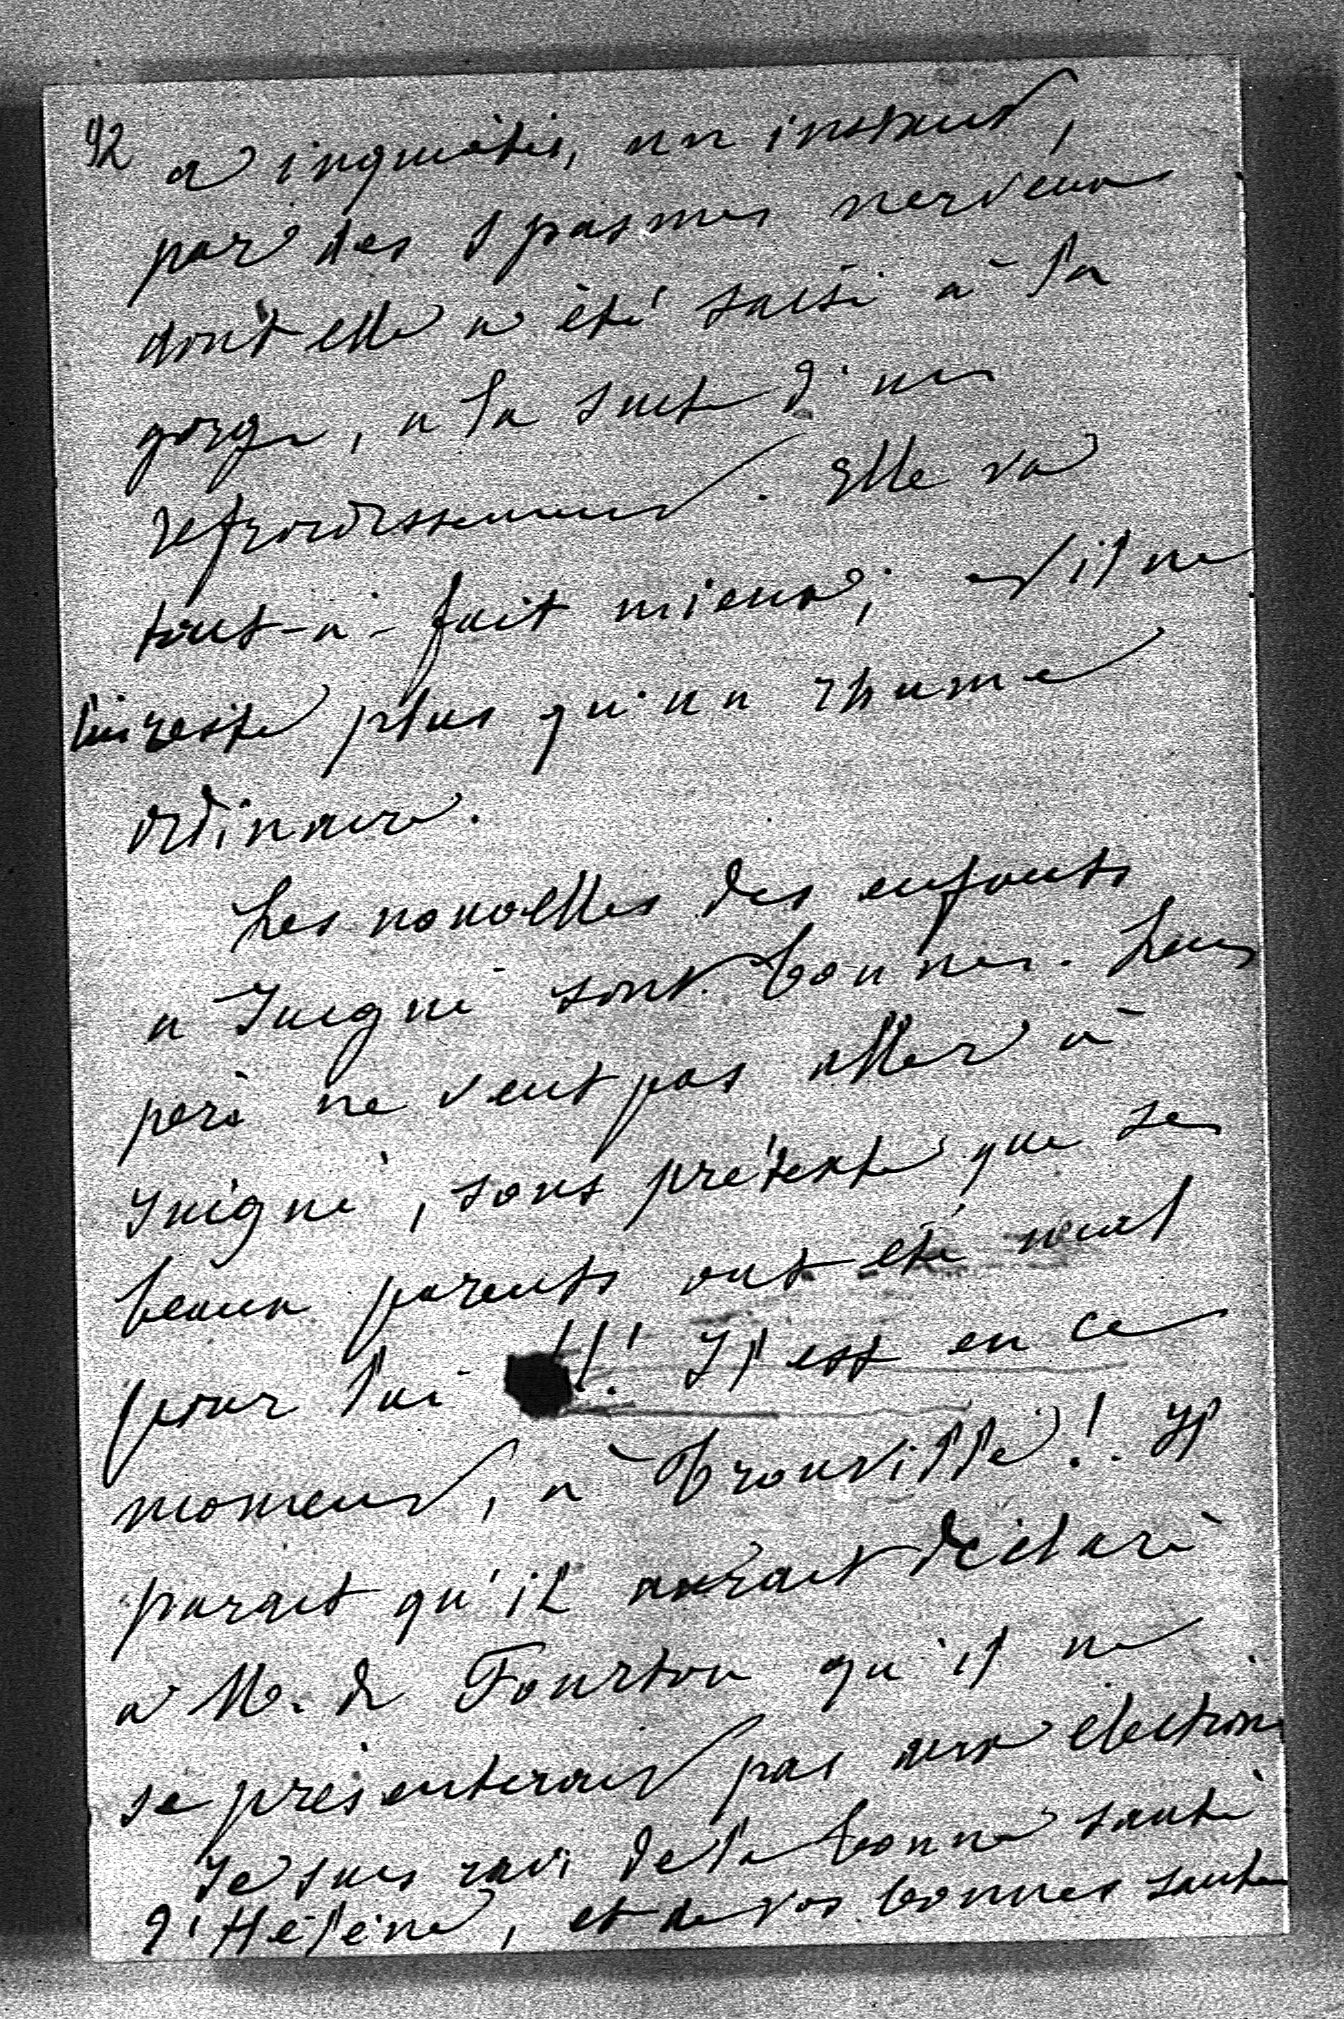 92 a inquiétés, un instant,
par des spasmes nerveux
dont elle a été saisi à la
gorge, a la suite d'un
refroidissement. Elle va
tout-à-fait mieux; et il ne
lui reste plus qu'un rhume
ordinaire.
Les nouvelles des enfants
a Juigné sont bonnes. Leur
père ne veut pas aller à
Juigné, sous prétexte que ses
beaux parents ont été
pour lui !!! Il est en ce
moment, à Trouville! Il
parait qu'il aurait déclaré
a M. de Fourtou qu'il ne
se présenterait pas aux élections
Je suis ravi de la bonne santé
d'Hélène, et de vos bonnes santés